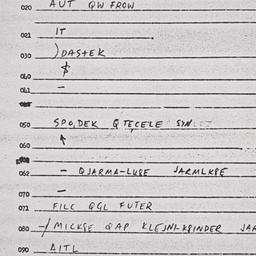 020 AUT QW FROW
021 IT
030 )DASTEK
$
060
061 -
050 SPO,DEK QTEÇELE SYN
060
062 - QJARMA-LUSE JARMLKSE
070 -
071 FILC GGL FUTER
080 -/MICKSE QAP KLEJNI-KSINDER JAR
090 AITL